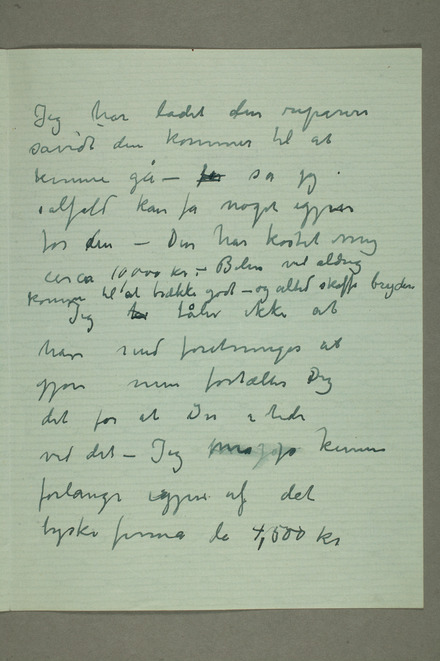 Jeg har ladet den reparere
såvidt den kommer til at
kunne gå – så jeg
ialfald kan få noget igjen
for den – Den har kostet mig
circa 10,000 kr. – Bilen vil aldrig
komme til at trække godt – og altid skaffe bryderi
Jeg tåler ikke at
have med forretninger at
gjøre men fortæller Dig
det for at Du
ved det – Jeg kunne
forlange igjen af det
tyske firma de 4,500 kr